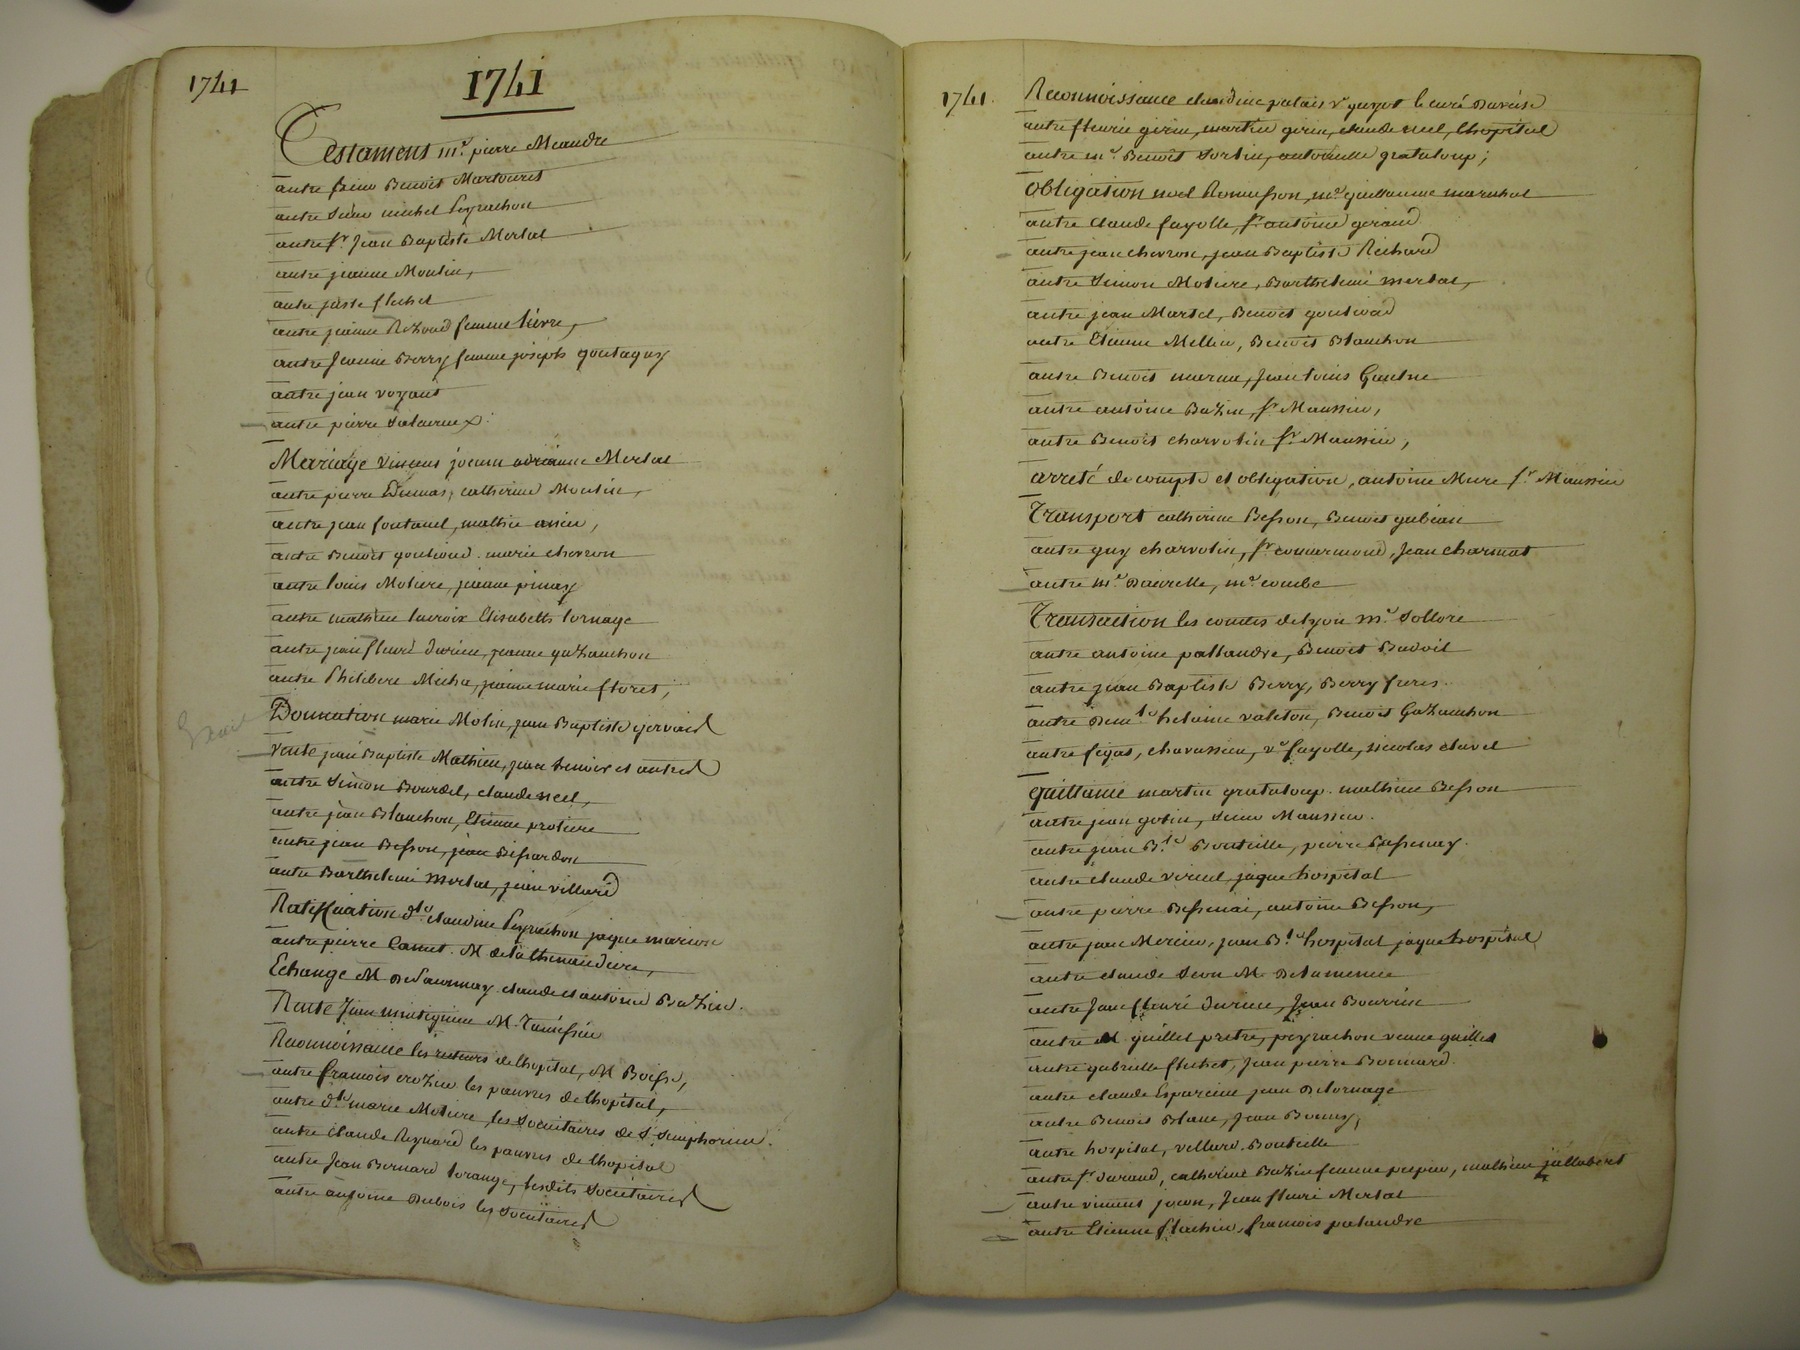 1741
1741
Testament mᵉ pierre Meandre
autre sieur Benoit Martouret
autre sieur michel Peyrachon
autre sʳ Jean Baptiste Merlat
autre jeanne Moulin,
autre juste flechet
autre jeanne Rezoud femme lièvre,
autre Jeanne Berry femme joseph goutagny
autre jean voyant
autre pierre
Mariage vincent jocum Merlat
autre pierre Dumas, catherine Moulin,
autre jean fontanel, mathie
autre Benoit goutioud. marie chevron
autre louis Moliere, jeanne pinay
autre mathieu lacroix Elisabeth tornage
autre jean fleuri durieu, jeanne gazanchon
autre Philibert Micha, jeanne marie floret,
Donnation marie Molin, jean Baptiste gervais
vente jean Baptiste Mathieu, jean benoit et autres
autre Simon Bourdel, claude neel,
autre jean Blanchon, Etienne protiere
autre jean Besson, jean Bissardon
autre Barthelemi Merlat, jean villard
Ratification dˡᵉ claudine Peyrachon jaque marion
autre pierre Canut. M. de la thenaudiere,
Echange M Delaurmay. claude et antoine Bazin.
Rente Jean M.
Reconnoissance les recteurs de lhopital, M Boisse,
autre francois crozier les pauvres de lhopital,
autre dˡᵉ marie Moliere, les Societaires de S. Simphorien.
autre claude Reynard les pauvres de lhopital
autre Jean Bernard lorange, lesdits Societaires
autre antoine Dubois les Societaires
1741.
Reconnoissance claudine palais vᵉ guyot le curé Davaise
autre fleurie girin, martin girin, claude neel, lhopital
autre mᵉ Benoit Sorlin, antoinette grataloup;
Obligation noel Ronnesson, mᵉ guillaume marechal
autre Claude fayolle, sʳ antoine geraud
autre jean chevron, jean Baptiste Richard
autre Simon Moliere, Barthelemi merlat,
autre jean Martel, Benoit goutioud
autre Etienne Mellier, Benoit Blanchon
autre Benoit Jean louis
autre antoine Bazin, sʳ Maussier,
autre Benoit charvolin sʳ Maussier,
arreté de compte et obligation, antoine Mure sʳ Maussier
Transport catherine Besson, Benoit gubian
autre guy charvolin, sʳ Jean charmat
autre mᵉ mᵉ combe
Transaction les comtes de lyon mᵉ Sollore
autre antoine pallandre, Benoit Badoil
autre jean Baptiste Berry, Berry freres.
autre Demˡᵉ helaine valeton, Benoit Gazanchon
autre chavassieu, vᵉ fayolle, nicolas clavel
quittance martin grataloup. mathieu Besson
autre jean gobin, sieur Maussier.
autre jean Bᵗᵉ Bouteille, pierre Bessenay.
autre claude jaque hospital
autre pierre Bessenai, antoine Besson,
autre jean Mercier, jean Bᵗᵉ hospital jaque hospital
autre claude M.
autre Jean fleuri durieu, Jean
autre M. guillet pretre, peyrachon veuve guillet
autre gabrielle flechet, Jean pierre Bonnard.
autre claude Esparcieu jean Delornage
autre Benoit Blanc, Jean
autre hospital, vellard. Bouteille
autre sʳ durand, catherine Bazin femme mathieu jallabert
autre vincent jocon, Jean fleuri Merlat
autre Etienne flachier, francois palandre